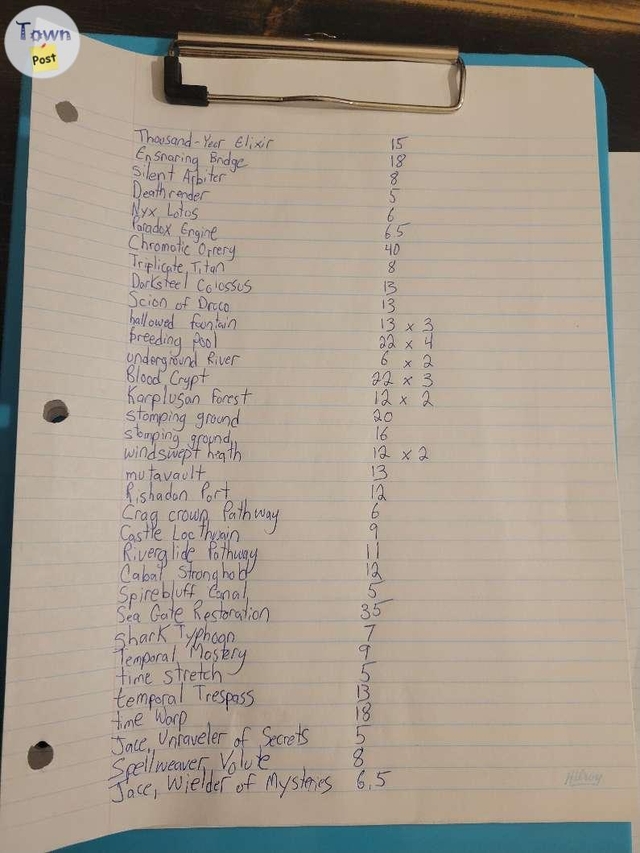 Town
Post
Thousand-Year Elixir 15
Ensnaring Bridge 18
Silent Arbiter 8
Deathrender 5
Nyx Lotus 6
Paradox Engine 6.5
Chromatic Orrery 40
Triplicate Titan 8
Darksteel Colossus 13
Scion of Draco 13
hallowed fountain 13 x 3
breeding pool 22 x 4
underground River 6 x 2
Blood Crypt 22 x 3
Karplusan Forest 12 x 2
stomping ground 20
stomping ground 16
windswept heath 12 x 2
mutavault 13
Rishadon Port 12
Crag crown Pathway 6
Castle Locthwain 9
Riverglide Pathway 11
Cabal Stronghold 12
Spirebluff Canal 5
Sea Gate Restoration 35
Shark Typhoon 7
Temporal Mastery 9
time stretch 5
temporal Trespass 13
time Warp 18
Jace, Unraveler of Secrets 5
Spellweaver Volute 8
Jace, Wielder of Mysteries 6.5
Hilroy